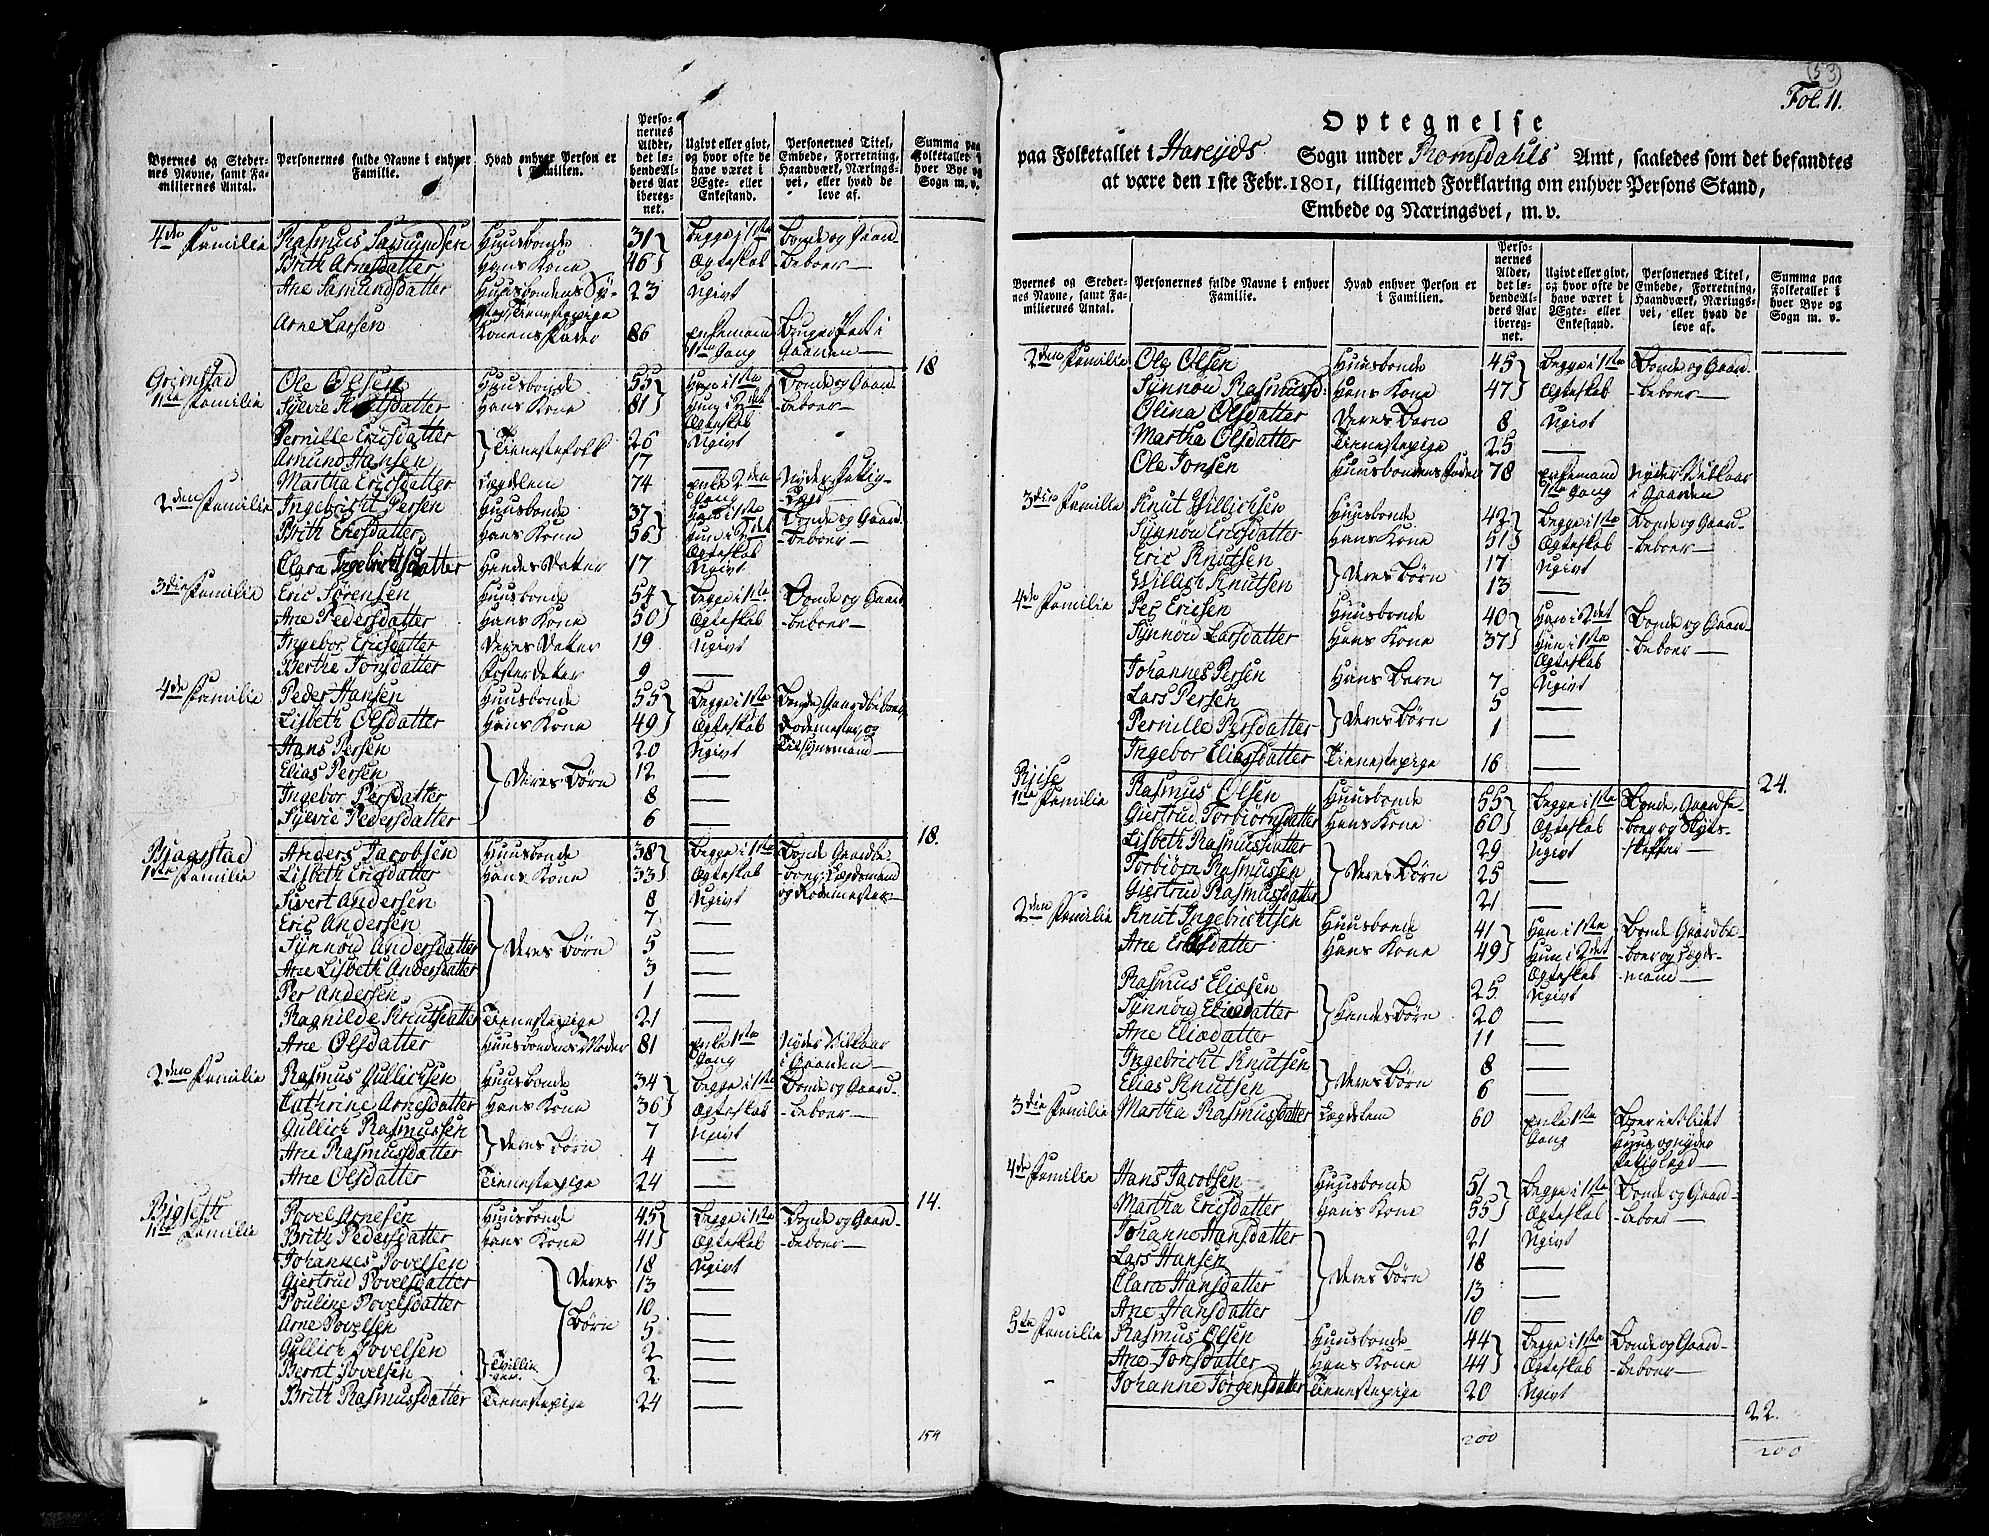 Byernes og Steder-
nes Navne, samt Fa-
miliernes Antal.
Personernes fulde Navne i enhver
Familie.
Hvad enhver Person er
i Familien.
Perso-
nernes
Alder,
det lø-
bende Al-
ders Aar
iberegnet.
Ugivt eller givt,
og hvor ofte de
have været i
Ægte- eller
Enkestand.
Personernes Titel,
Embede, Forretning,
Haandværk, Nærings-
vei, eller hvad de
leve af.
Summa paa
Folketallet i
hver Bye og
Sogn m. v.
4de Familie Rasmus Samundsen Huusbonde 31 Begge i 1ste Bonde og Gaard-
Brith Arnesdatter Hans Kone 46 Ægteskab beboer
Ane Samundsdatter Huusbondens Sy- 23 Ugivt
ster, Tienestepige
Arne Larsen Konens Fader 86 Enkemand
1ste Gang Gaarden 18
Grimstad
1ste Familie Ole Olsen Huusbonde 55 Han i 1ste Bonde og Gaard-
Sylvie Knutsdatter Hans Kone 81 Hun i 2det beboer
Ægteskab
Pernille Ericsdatter Tienestefolk 26 Ugivt
Amund Hansen 17 —
Martha Ericsdatter Lægdslem 74 Enke 2den Nyder Fattig-
Gang Lægd
2den Familie Ingebricht Persen Huusbonde 37 Han i 1ste Bonde og Gaard-
Brith Ericsdatter Hans Kone 56 Hun i 2det beboer
Ægteskab
Clara Ingebrichtsdatter Hendes Datter 17 Ugivt
3die Familie Eric Sørensen Huusbonde 54 Begge i 1ste Bonde og Gaard-
Ane Pedersdatter Hans Kone 50 Ægteskab beboer
Ingebor Ericsdatter Deres Datter 19 Ugivt
Berthe Jonsdatter Foster Datter 9 —
4de Familie Peder Hansen Huusbonde 55 Begge i 1ste Bonde, Gaardbeboer,
Lisbeth Olsdatter Hans Kone 49 Ægteskab Rodemester og
Hans Persen Deres Børn 20 Ugivt Tilsynsmand
Elias Persen 12 —
Ingebor Persdatter 8 —
Sylvie Pedersdatter 6 —
18.
Bjaastad
1ste Familie Anders Jacobsen Huusbonde 38 Begge i 1ste Bonde Gaardbe-
Lisbeth Ericsdatter Hans Kone 33 Ægteskab boer, Lægdsmand
Sivert Andersen Deres Børn 8 Ugivt og Rodemester
Eric Andersen 7 —
Synnøv Andersdatter 5 —
Ane Lisbeth Andersdatter 3 —
Per Andersen 1 —
Ragnilde Knutsdatter Tienestepige 21 —
Ane Olsdatter Huusbondens Moder 81 Enke 1ste Nyder Vilkaar
Gang i Gaarden
2den Familie Rasmus Gullichsen Huusbonde 34 Begge i 1ste Bonde og Gaard-
Cathrine Arnesdatter Hans Kone 36 Ægteskab beboer
Gullich Rasmussen Deres Børn 7 Ugivt
Ane Rasmusdatter 4 —
Ane Olsdatter Tienestepige 24 —
14.
Bigseth
1ste Familie Povel Arnesen Huusbonde 45 Begge i 1ste Bonde og Gaard-
Brith Pedersdatter Hans Kone 41 Ægteskab beboer
Johannes Povelsen Deres Børn 18 Ugivt
Giertrud Povelsdatter 13 —
Pouline Povelsdatter 10 —
Arne Povelsen 5 —
Gullich Povelsen Tvillin- 2 —
Bernt Povelsen ger. 2 —
Brith Rasmusdatter Tienestepige 24 —
154
(53)
Fol. 11.
Optegnelse
paa Folketallet i Hareids Sogn under Romsdahls Amt, saaledes som det befandtes
at være den 1ste Febr. 1801, tilligemed Forklaring om enhver Persons Stand,
Embede og Næringsvei, m. v.
Byernes og Steder-
nes Navne, samt Fa-
miliernes Antal.
Personernes fulde Navne i enhver
Familie.
Hvad enhver Person er
i Familien.
Perso-
nernes
Alder,
det lø-
bende Al-
ders Aar
ibereg-
net.
Ugivt eller givt,
og hvor ofte de
have været i
Ægte- eller
Enkestand.
Personernes Titel,
Embede, Forretning,
Haandværk, Nærings-
vei, eller hvad de
leve af.
Summa paa
Folketallet i
hver Bye og
Sogn m. v.
2den Familie Ole Olsen Huusbonde 45 Begge i 1ste Bonde og Gaard-
Synnøv Rasmusd: Hans Kone 47 Ægteskab beboer
Olina Olsdatter Deres Barn 8 Ugivt
Martha Olsdatter Tienestepige 25 —
Ole Jonsen Huusbondens Fader 78 Enkemand Nyder Vilkaar
1ste Gang i Gaarden
3die Familie Knut Willichsen Huusbonde 42 Begge i 1ste Bonde og Gaard-
Synnøv Ericsdatter Hans Kone 51 Ægteskab beboer
Eric Knutsen Deres Børn 17 Ugivt
Willigh Knutsen 13 —
4de Familie Per Ericsen Huusbonde 40 Han i 2det Bonde og Gaard-
Synnøv Larsdatter Hans Kone 37 Hun i 1ste beboer
Ægteskab
Johannes Persen Hans Barn 7 Ugivt
Lars Persen Deres Børn 5 —
Pernille Persdatter 1 —
Ingebor Eliasdatter Tienestepige 16 —
24.
Riise
1ste Familie Rasmus Olsen Huusbonde 55 Begge i 1ste Bonde, Gaardbe-
Giertrud Torbiørnsdatter Hans Kone 60 Ægteskab boer og Skyds-
Lisbeth Rasmusdatter Deres Børn 29 Ugivt skaffer
Torbiørn Rasmussen 25 —
Giertrud Rasmusdatter 21 —
2den Familie Knut Ingebrichtsen Huusbonde 41 Han i 1ste Bonde Gaardbe-
Ane Ericsdatter Hans Kone 49 Hun i 2det boer og Lægds-
Ægteskab mand
Rasmus Eliæsen Hendes Børn 25 Ugivt
Synnøv Eliædatter 20 —
Ane Eliædatter 11 —
Ingebricht Knutsen Deres Børn 8 —
Elias Knutsen 6 —
3die Familie Martha Rasmusdatter Lægdslem 60 Enke 1ste
Gang
4de Familie Hans Jacobsen Huusbonde 51 Begge i 1ste Bonde og Gaard-
Martha Ericsdatter Hans Kone 55 Ægteskab beboer
Johanne Hansdatter Deres Børn 21 Ugivt
Lars Hansen 18 —
Clara Hansdatter 13 —
Ane Hansdatter 10 —
5te Familie Rasmus Olsen Huusbonde 44 Begge i 1ste Bonde og Gaard-
Ane Jonsdatter Hans Kone 44 Ægteskab beboer
Johanne Jørgensdatter Tienestepige 20 Ugivt
22.
200 200